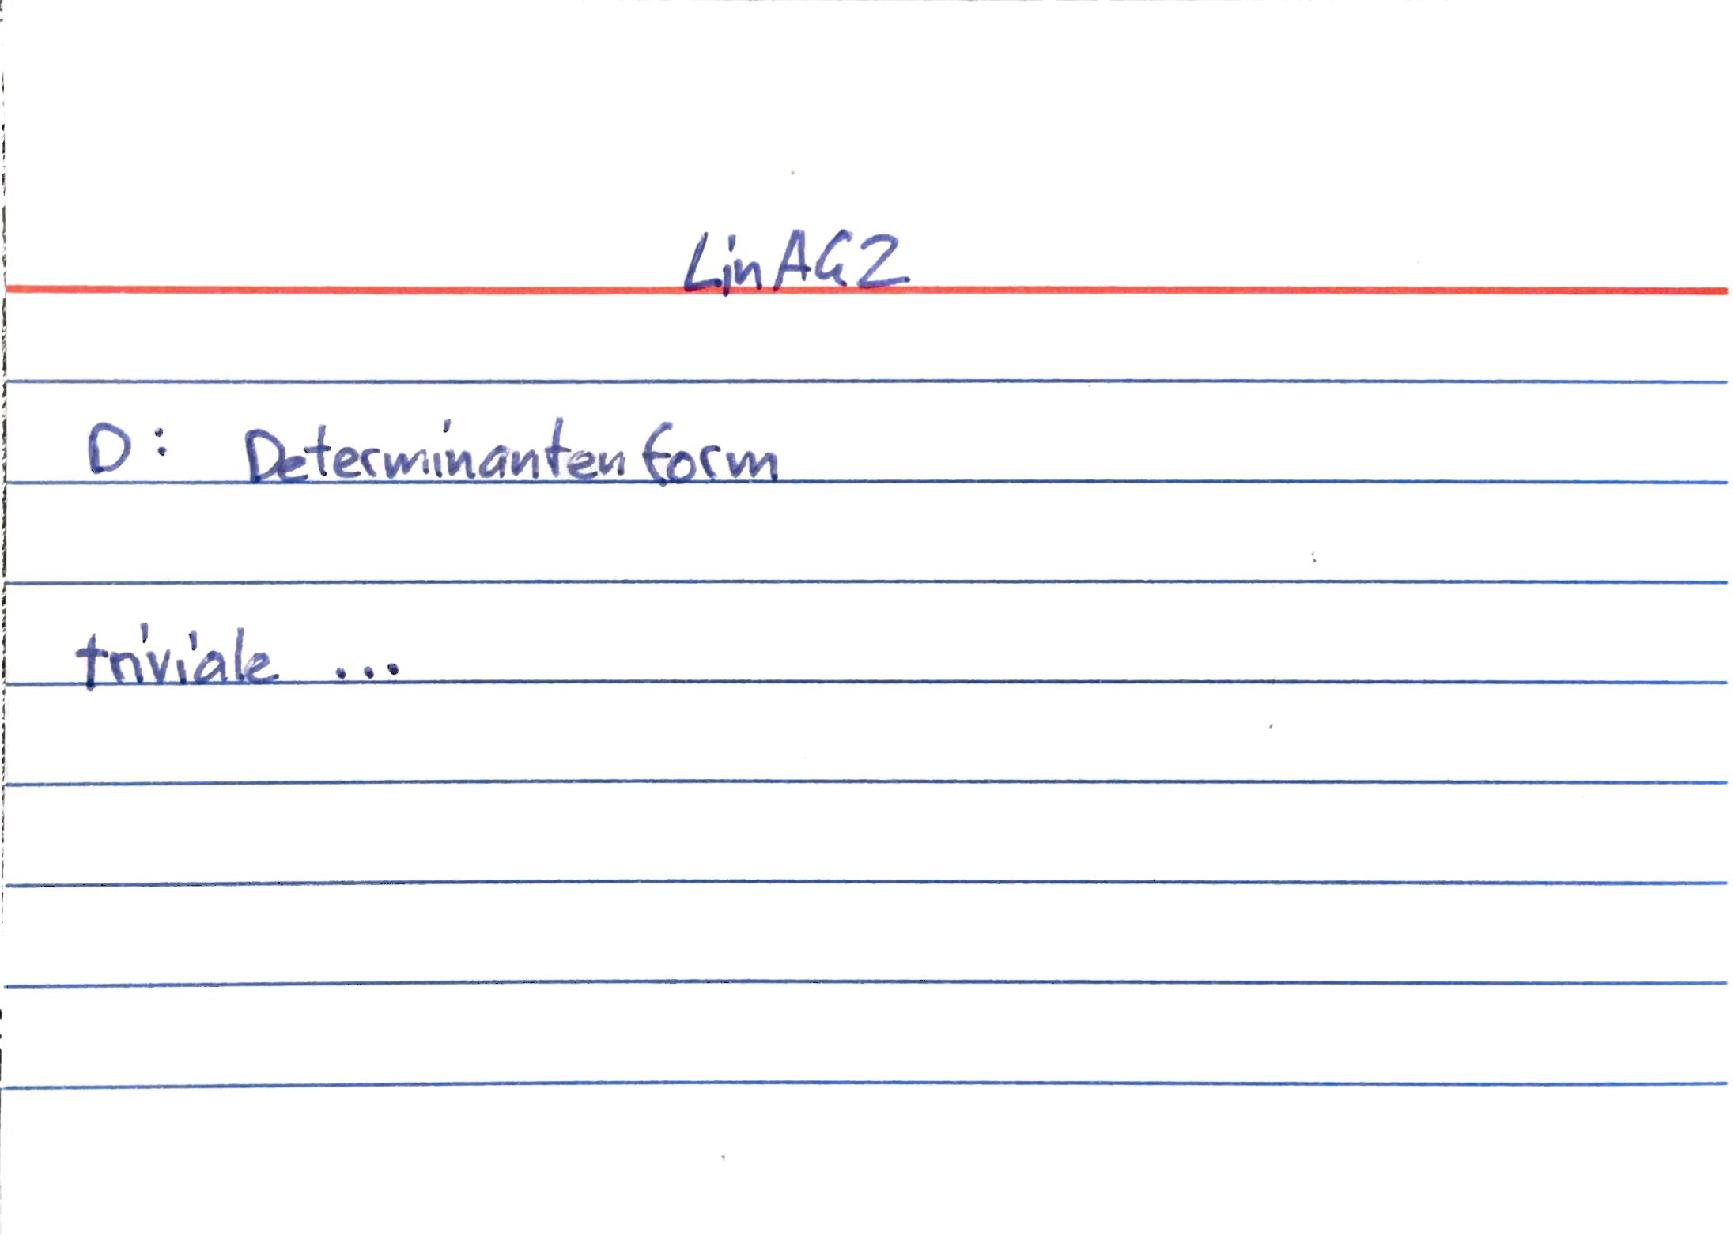 LinAG2
D: Determinantenform
triviale ...